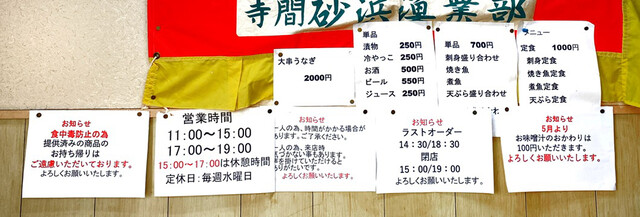 寺間砂浜漁業部
大串うなぎ
2000円
単品
漬物 250円
冷やっこ 250円
お酒 500円
ビール 550円
ジュース 250円
単品 700円
刺身盛り合わせ
焼き魚
煮魚
天ぷら盛り合わせ
メニュー
定食 1000円
刺身定食
焼き魚定食
煮魚定食
天ぷら定食
お知らせ
食中毒防止の為
提供済みの商品の
お持ち帰りは
ご遠慮いただいております。
よろしくお願いいたします。
営業時間
11:00〜15:00
17:00〜19:00
15:00〜17:00は休憩時間
定休日:毎週水曜日
お知らせ
一人の為、時間がかかる場合が
あります。ご了承ください。
一人の為、来店時
気づかない事もあります。
声を掛けていただけると
ありがたいです。
よろしくお願いいたします。
お知らせ
ラストオーダー
14:30/18:30
閉店
15:00/19:00
よろしくお願いいたします。
お知らせ
5月より
お味噌汁のおかわりは
100円いただきます。
よろしくお願いいたします。